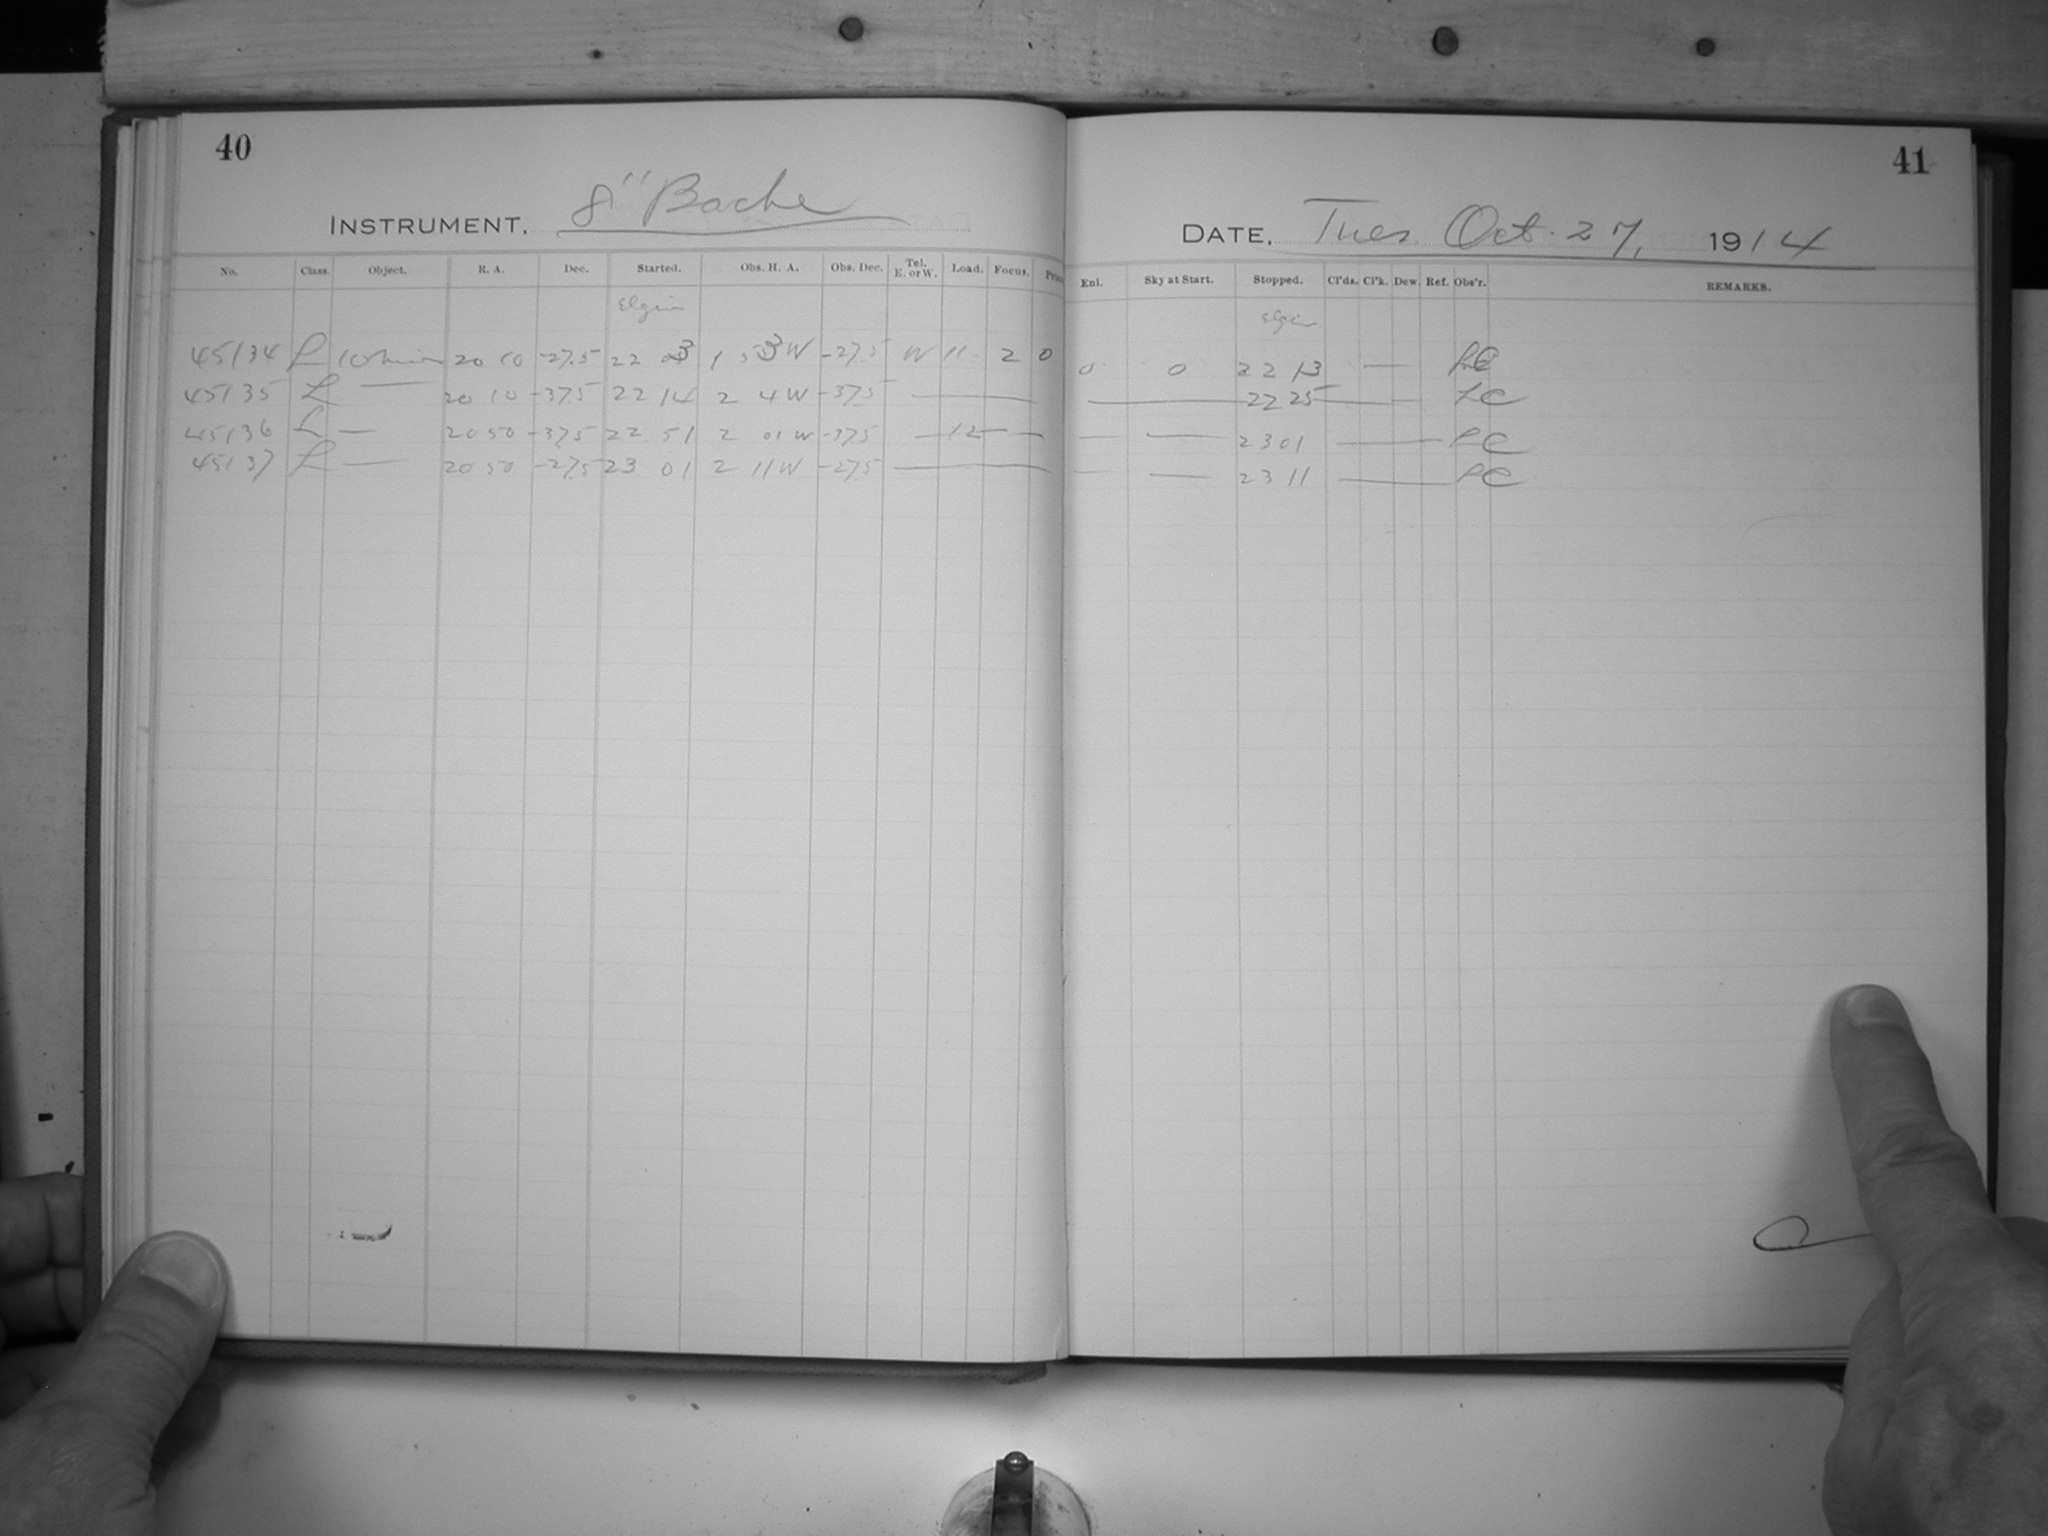 40
INSTRUMENT, 8" Bache
No. Class. Object. R. A. Dec. Started. Obs. H. A. Obs. Dec. Tel. E. or W. Load. Focus.
Elgin
45134 L 10 min 20 10 -27.5 22 03 1 53 W -27.5 W 11 2 0
45135 L — 20 10 -37.5 22 14 2 4 W -37.5 —
45136 L — 20 50 -37.5 22 51 2 01 W -37.5 — 12 —
45137 L — 20 50 -27.5 23 01 2 11 W -27.5 —
41
DATE, Tues. Oct. 27, 1914
Enl. Sky at Start. Stopped. Cl'ds. Cl'k. Dew. Ref. Obs'r. REMARKS.
Elgin
0 0 22 13 — LC
— 22 25 — LC
— — 23 01 — LC
— — 23 11 — LC